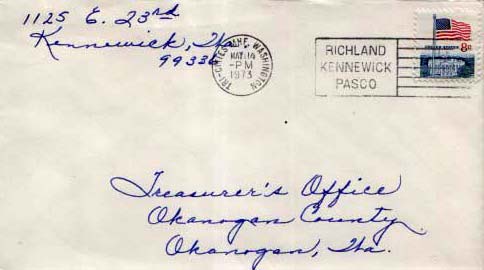 1125 E. 23rd
Kennewick, Wa.
99336
TRI-CITIES WAFB, WASHINGTON
MAY 14
-PM
1973
RICHLAND
KENNEWICK
PASCO
8c
Treasurer's Office
Okanogan County
Okanogan, Wa.